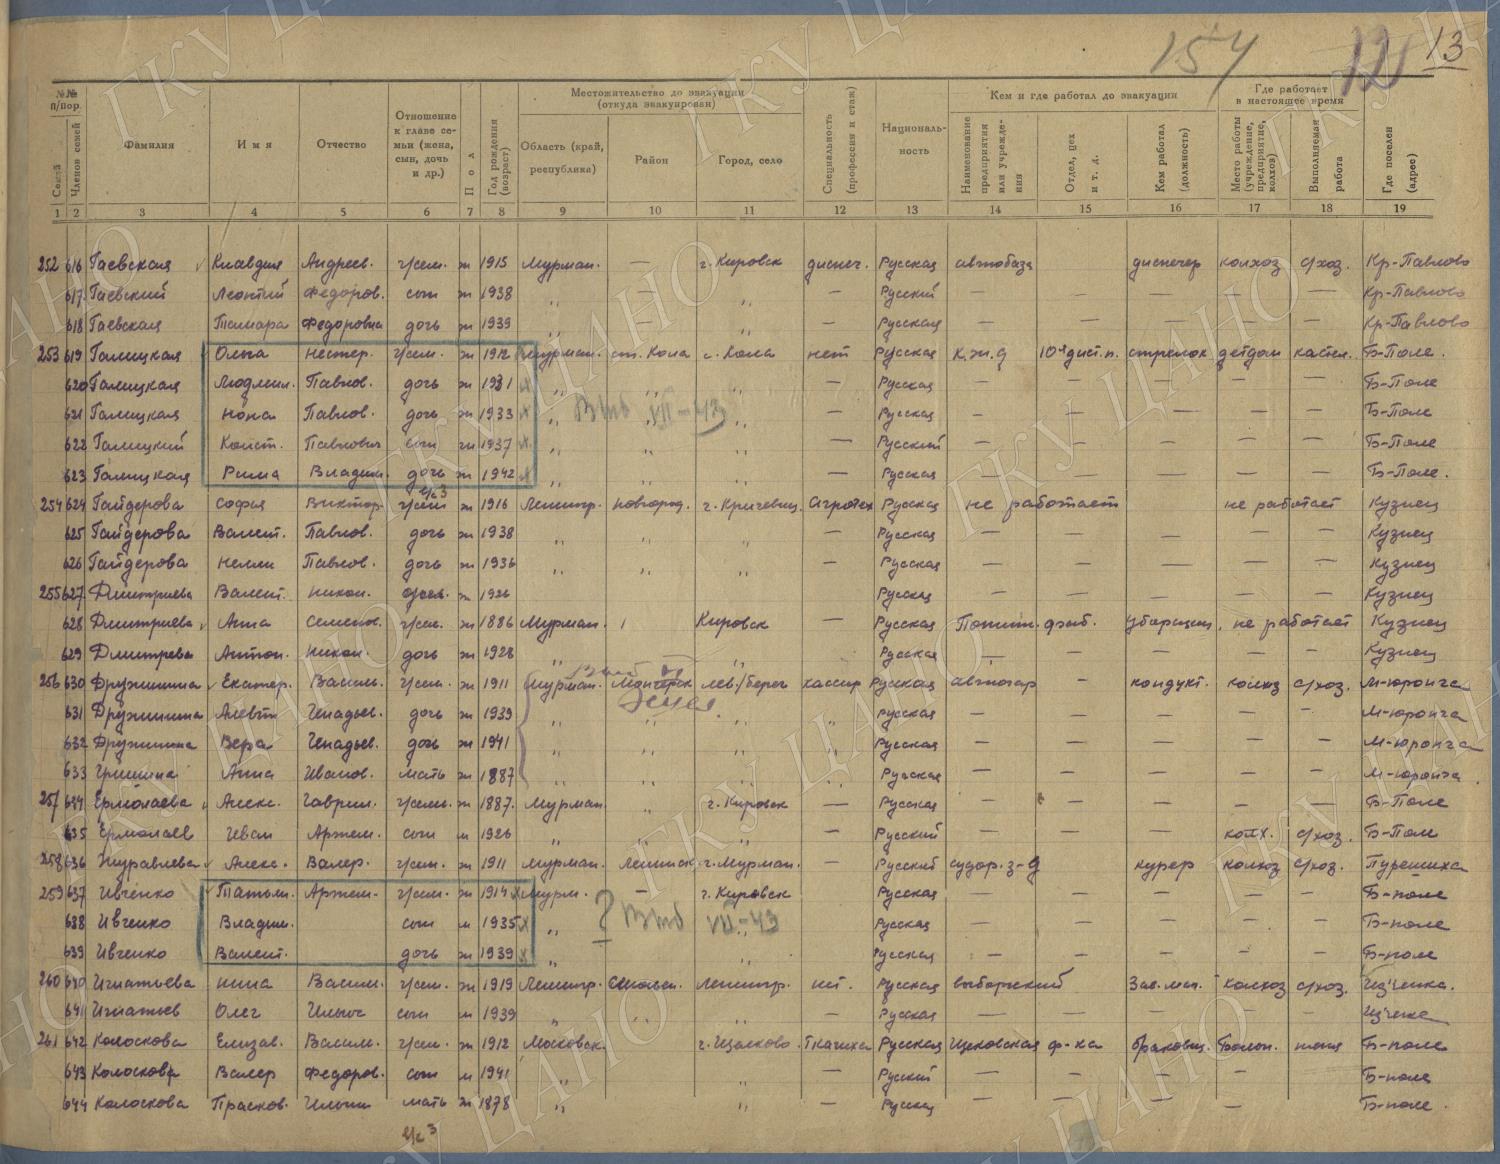 154 12 13
№№ п/пор. Местожительство до эвакуации (откуда эвакуирован) Кем и где работал до эвакуации Где работает в настоящее время
Семей Членов семей Фамилия Имя Отчество Отношение к главе семьи (жена, сын, дочь и др.) Пол Год рождения (возраст) Область (край, республика) Район Город, село Специальность (профессия и стаж) Националь-ность Наименование предприятия или учрежде-ния Отдел, цех и т. д. Кем работал (должность) Место работы (учреждение, предприятие, колхоз) Выполняемая работа Где поселен (адрес)
1 2 3 4 5 6 7 8 9 10 11 12 13 14 15 16 17 18 19
252 616 Гаевская Клавдия Андреев. г/сем. ж 1915 Мурман. — г. Кировск диспеч. Русская автобаза диспечер колхоз с/хоз. Кр-Павлово
617 Гаевский Леонтий Федоров. сын 1938 „ — „ — Русский — — — — — Кр-Павлово
618 Гаевская Тамара Федоровна дочь ж 1939 „ — „ — Русская — — — — — Кр-Павлово
253 619 Галицкая Ольга Нестер. г/сем. ж 1912 Мурман. ст. Кола с. Кола нет Русская К.ж.д стрелок детдом кастел. Б-Поле.
620 Галицкая Людмил. Павлов. дочь ж 1931 „ „ „ — Русская — — — — — Б-Поле
621 Галицкая Нона Павлов. дочь ж 1933 „ VII-43 „ — Русская — — — — — Б-Поле
622 Галицкий Конст. Павлович сын 1937 „ „ „ — Русский — — — — — Б-Поле
623 Галицкая Рима Владим. дочь ж 1942 „ „ „ — Русская — — — — — Б-Поле.
254 624 Гайдерова София Виктор. г/сем ж 1916 Ленингр. Новгород. г. Кричевиц. Агротех Русская не работает не работает Кузнец
625 Гайдерова Валент. Павлов. дочь ж 1938 „ „ „ — Русская — — — — — Кузнец
626 Гайдерова Нелли Павлов. дочь ж 1936 „ „ „ — Русская — — — — — Кузнец
255 627 Дмитриева Валент. Никол. ж 1926 Русская — — — — — Кузнец
628 Дмитриева Анна Семенов. г/сем. ж 1886 Мурман. Кировск — Русская уборщиц. не работает Кузнец
629 Дмитриева Антон. Никол. дочь ж 1928 „ „ Русская — — — — — Кузнец
256 630 Дружинина Екатер. Василь. г/сем. ж 1911 Мурман. Мончегорск лев./берег кассир Русская — кондукт. колхоз с/хоз. М-юронга
631 Дружинина Алевт Генадьев. дочь ж 1939 „ „ „ „ Русская — — — — — М-юронга
632 Дружинина Вера Генадьев. дочь ж 1941 „ „ „ „ Русская — — — — — М-юронга
633 Гришина Анна Иванов. мать ж 1887 „ „ „ „ Русская — — — — — М-юронга
257 634 Ермолаева Алекс. Гаврил. г/семь. ж 1887. Мурман „ г. Кировск — Русская — — — — Б-Поле
635 Ермолаев Иван Артем. сын м 1926 „ „ „ — Русский — — — колх. с/хоз. Б-Поле
258 636 Журавлева Алекс. Валер. г/сем. ж 1911 Мурман. Ленинск. г. Мурман. — Русский судор. з-д курер колхоз с/хоз. Пурешиха
259 637 Ивченко Татьян. Артем. г/сем. ж 1914 Мурм. — г. Кировск Русская — — — — — Б-поле
638 Ивченко Владим. сын м 1935 „ ? VII-43 Русская — — — — — Б-поле
639 Ивченко Валент. дочь ж 1939 „ „ Русская — — — — — Б-поле
260 640 Игнатьева Нина Васил. г/сем. ж 1919 Ленингр. Смольн. Ленингр. нет. Русская выборгский Зав. маг. колхоз с/хоз.
641 Игнатьев Олег Ильич сын 1939 „ „ „ — Русская — — — — —
261 642 Колоскова Елизав. Васил. г/сем. ж 1912 Московск. г. Щелково. Ткачиха Русская Щелковская ф-ка браковщ. Б-поле
643 Колоскова Валер Федоров. сын м 1941 „ „ — Русский — — — — — Б-поле
644 Колоскова Прасков. Ильин мать ж 1878 „ „ — Русская — — — — Б-поле.
ГКУ ЦАНО